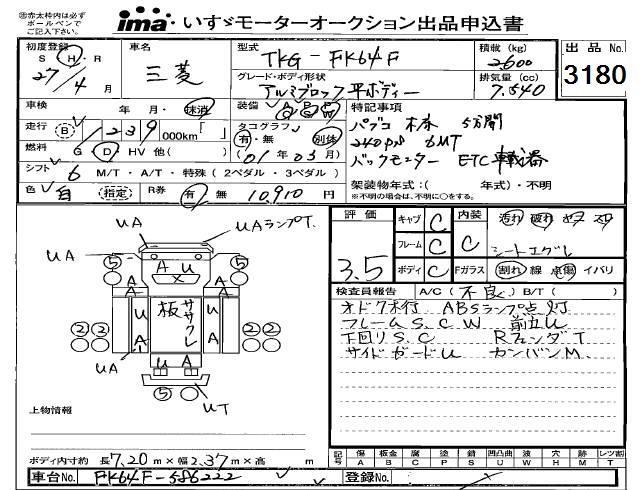 ※赤太枠内は必ず
ボールペンで
ご記入下さい。
ima いすゞモーターオークション出品申込書
初度登録 S H R 27/4 月
車名 三菱
型式 TKG-FK64F
積載(kg) 2600
出品No. 3180
グレード・ボディ形状 アルミブロック平ボディー
排気量(cc) 7.540
車検 年 月・抹消
装備 A P P
特記事項
走行 B 239 000km「 」
タコグラフ 有・無 別体
パブコ 床 5方開
燃料 G D HV 他( )
01年03月
240ps 6MT
シフト 6 M/T・A/T・特殊(2ペダル・3ペダル)
バックモーター ETC
色 白 指定 R券 有 無 10,910円
架装物年式:( 年式)・不明
※不明の場合は、不明に○をする。
評価 3.5
キャブ C 内装 C 汚れ 破れ
フレーム C シートエグレ
ボディ C Fガラス 割れ 線 点傷 イバリ
検査員報告 A/C(不良)B/T( )
ABSランプ点灯
フレームS.C.W 前立U
下回りS.C RフェンダT
サイドガードU カンバンM
UA UAランプT.
UA
5 A U 5
A X A
U 板ササクレ U
A A
2 2 2 2
UA U A
5 UT
上物情報
ボディ内寸約 長7.20m×幅2.37m×高 m
記号 傷A 板金B 腐C 塗P 錆S 凹凸曲U 補W 穴H 跡M レツ割T
車台No. FK64F-586222
登録No.